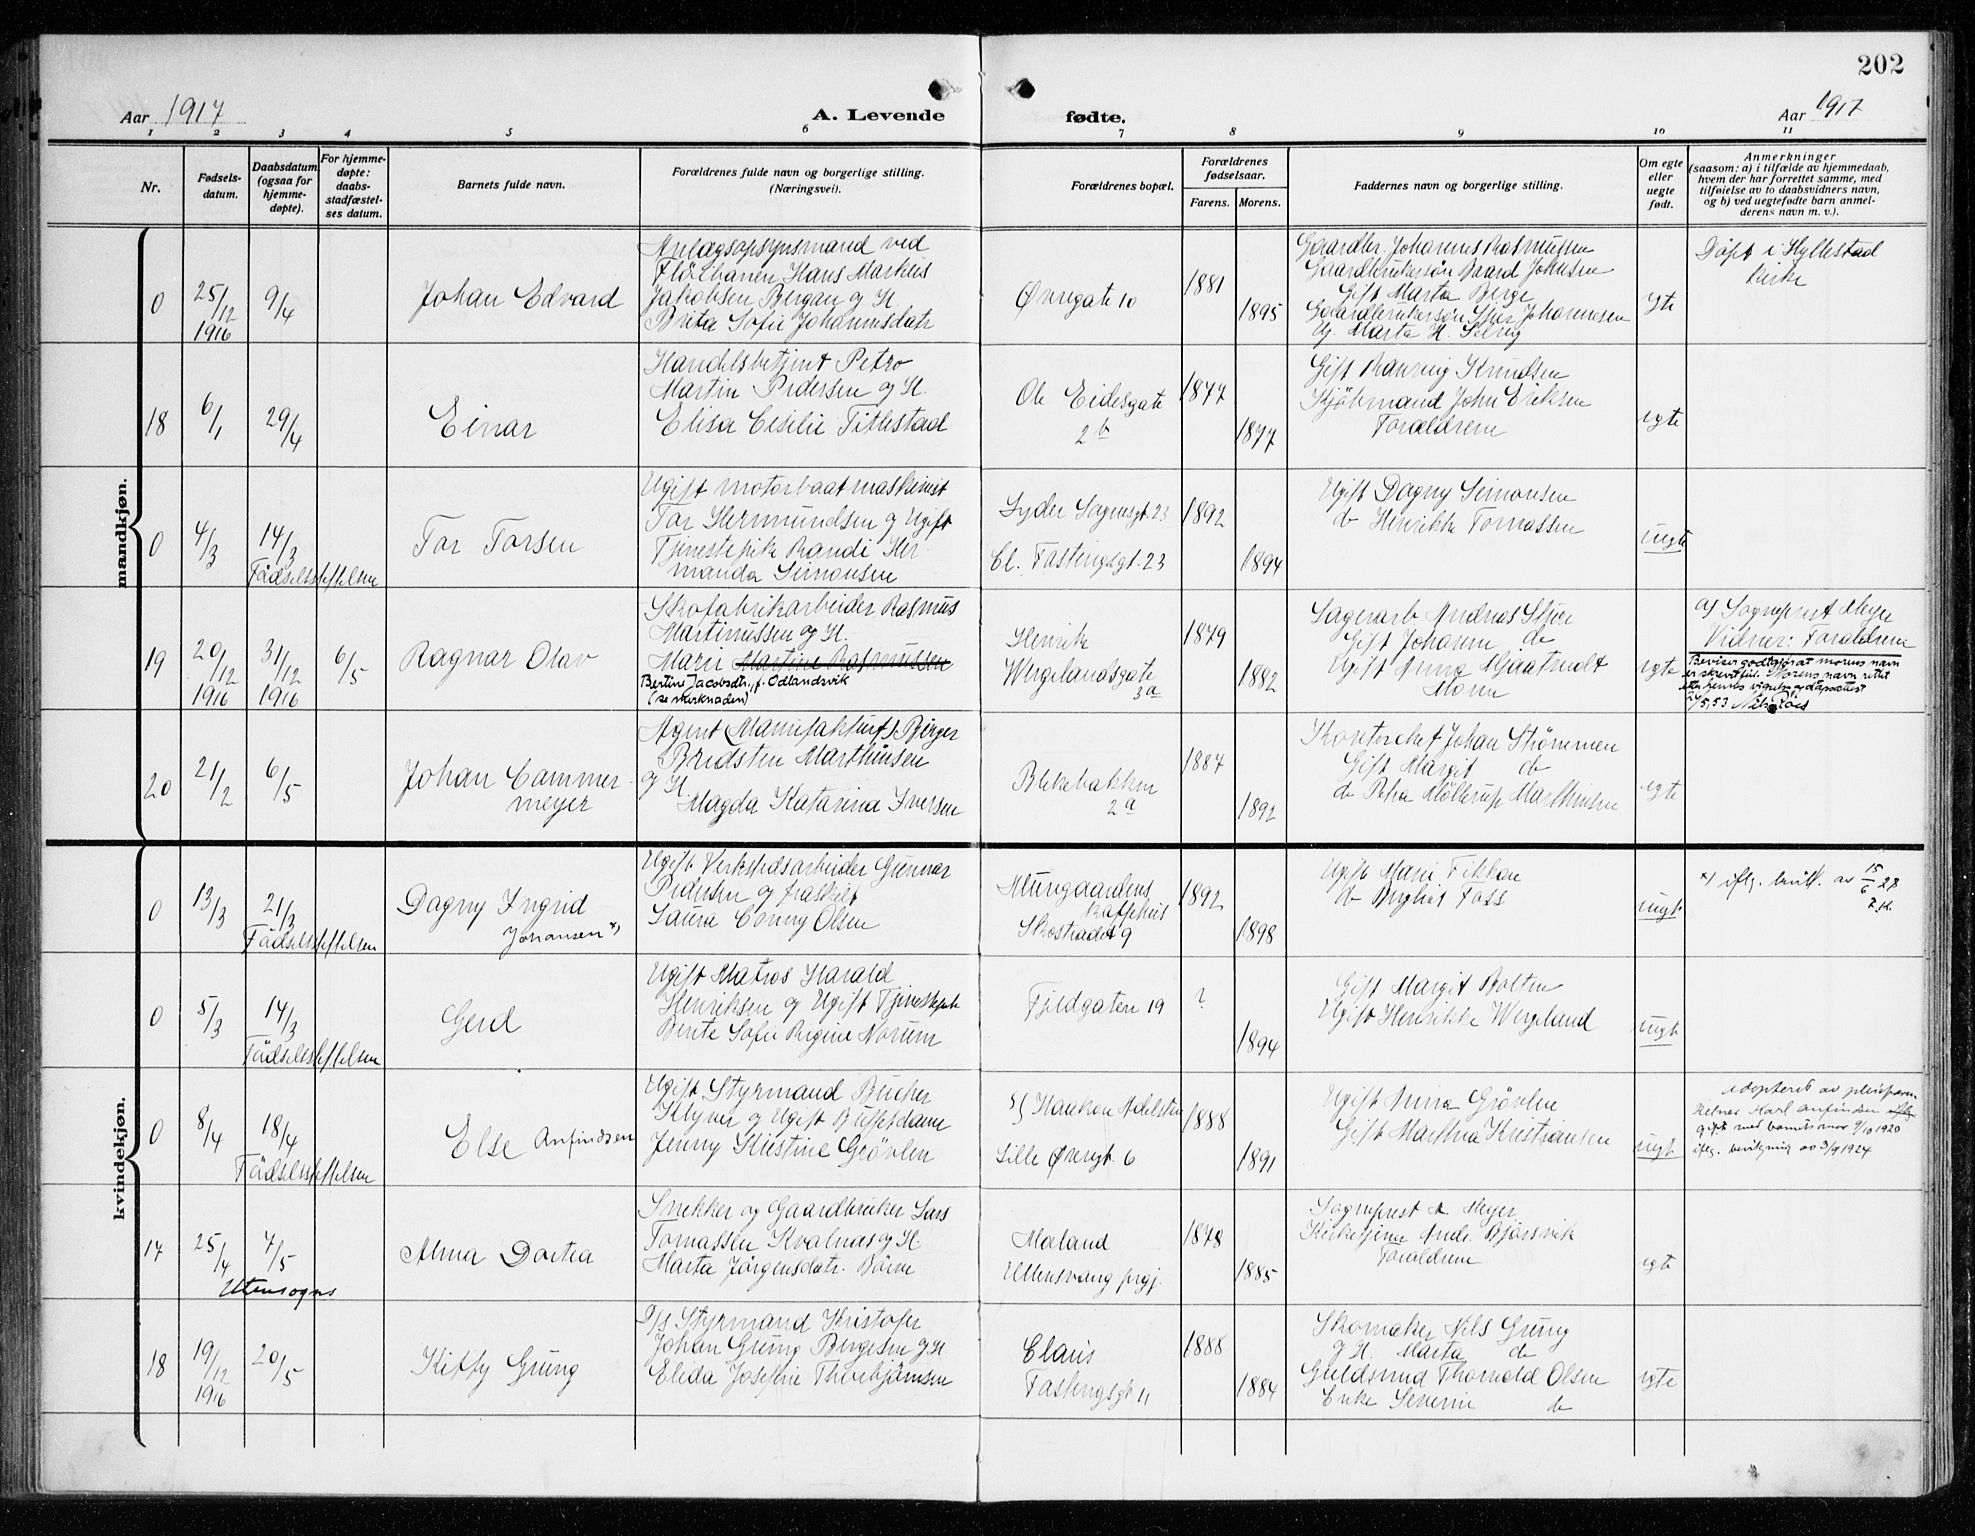 202
Aar 1917
A. Levende
fødte.
Aar 1917
1 2 3 4 5 6 7 8 9 10 11
Nr.
Fødsels-
datum.
Daabsdatum
(ogsaa for
hjemme-
døpte).
For hjemme-
døpte:
daabs-
stadfæstel-
ses datum.
Barnets fulde navn.
Forældrenes fulde navn og borgerlige stilling.
(Næringsvei).
Forældrenes bopæl.
Forældrenes
fødselsaar.
Farens. Morens.
Faddernes navn og borgerlige stilling.
Om egte
eller
uegte
født.
Anmerkninger
(saasom: a) i tilfælde av hjemmedaab,
hvem der har forrettet samme, med
tilføielse av to daabsvidners navn,
og b) ved uegtefødte barn anmel-
derens navn m. v.).
mandkjøn.
0
25/12
1916
9/4
Johan Edvard
Anlægsopsynsmand ved
Fløibanen Hans Markus
Jakobsen Bergan og H.
Brita Sofie Johannesdatr
Øvregate 10
1881
1895
Gaardbr. Johannes Rasmussen
Gaardbrukersøn Baard Johnsen
Gift Marta Berge
Gaardbrukersøn Johannesen
Ug. Marta H.
egte
Døpt i Hyllestad
kirke
18
6/1
29/4
Einar
Handelsbetjent Petro
Martin Pedersen og H.
Elisa Cesilie Titlestad
Ole Eidesgate
2b
1877
1877
Gift Ranveig Knudsen
Kjøbmand John Eriksen
Forældrene
egte
0
4/3
14/3
Fødselsstiftelsen
Tor Torsen
Ugift motorbaatmaskinist
Tor Hermundsen og Ugift
Tjenestepike Randi Her-
manda Simonsen
Lyder Sagensgt. 23
Cl. Fastingsgt. 23
1892
1894
Ugift Dagny Simonsen
do Henrikke Tomassen
uegte
19
20/12
1916
31/12
1916
6/5
Ragnar Olav
Skofabrikarbeider Rasmus
Martinussen og H.
Marie Martine Rasmussen
Bertine Jacobsdtr., f. Odlandsvik
(se skriknaden)
Henrik
Wergelandsgate
3a
1879
1882
Lagerarb Andreas
Gift Johanne do
Ugift Anna
Moren
egte
a) Sogneprest Meyer
Vidner: Forældrene
Beviser godtgjør at morens navn
er skrevet feil. Morens navn rettet
etter hennes vigsels og dåpsattest
20
21/2
6/5
Johan Cammer-
meyer
Agent (Manufaktur) Birger
Bredsten Marthinsen
og H.
Magda Katarina Iversen
Blekebakken
2a
1887
1892
Kontorchef Johan Strömmen
Gift Margit do
do Petra Möllerup Marthinsen
egte
kvindekjøn.
0
13/3
21/3
Fødselsstiftelsen
Dagny Ingrid
Johansen x)
Ugift Verkstedsarbeider Gunnar
Pedersen og fraskilt
Laura Conny Olsen
Murgaardens
Kaffehus
Skostrædet 9
1892
1898
Ugift Marie
do Foss
uegt
x) iflg. bevill. av 15/6 27
0
5/3
14/3
Fødselsstiftelsen
Gerd
Ugift Matros Harald
Henriksen og Ugift Tjenestepike
Bente Sofie Regine Norum
Fjeldgaten 19
?
1894
Gift Margit Bolten
Ugift Henrikke Wergeland
uegt
0
8/4
18/4
Fødselsstiftelsen
Else Anfindsen
Ugift Styrmand Bucher
og Ugift Buffetdame
Jenny Kristine Grövlen
Haakon Adelsten
Lille Øvregt. 6
1888
1891
Ugift Anna Grövlen
Gift Martha Kristiansen
uegt
adopteret av
Karl Anfindsen
gift med barnets mor 9/10 1920
iflg. bevilgning av 3/9 1924
17
25/4
7/5
Utensogns
Alma Dortea
Snekker og Gaardbruker Lars
Tomassen Kvalnes og H
Marta Jørgensdatr. Børve
Mæland
Ullensvang prgj.
1878
1885
Sogneprest Meyer
Kirketjener Andr. Bjørsvik
Forældrene
egte
18
19/12
1916
20/5
Kitty Grung
Styrmand Kristofer
Johan Grung Bergesen og H
Elida Josefine Thorbjørnsen
Claus
Fastingsgt 11
1888
1884
Skomaker Nils Grung
og H. Marta do
Guldsmed Thorvald Olsen
Enke Severine do
egte